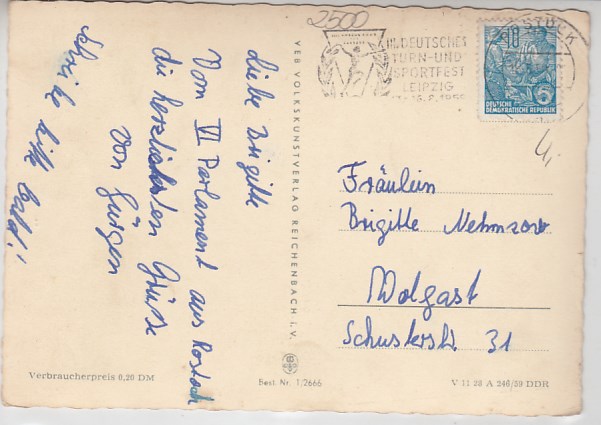 2500
III. DEUTSCHES
TURN-UND
SPORTFEST
LEIPZIG
10
DEUTSCHE
DEMOKRATISCHE REPUBLIK
4,-
Liebe Brigitte
Vom VI Parlament aus Rostock
die herzlichsten Grüsse
von Jürgen
Schreibe bitte bald!
VEB VOLKSKUNSTVERLAG REICHENBACH I. V.
Fräulein
Brigitte
Wolgast
Schusterstr. 31
Verbraucherpreis 0,20 DM
Best. Nr. 1/2666
V 11 28 A 246/59 DDR